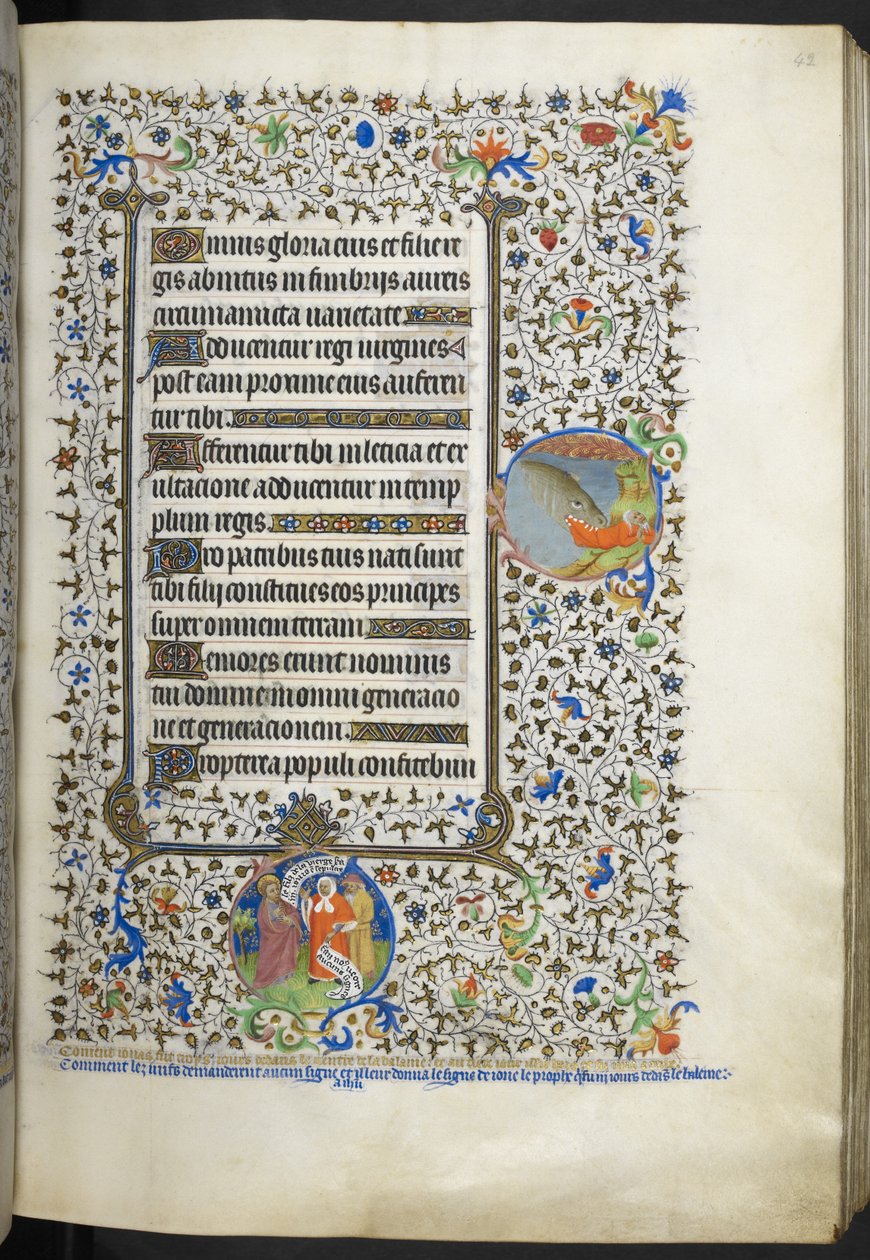 42
Omnis gloria eius et filie re
gis ab intus in fimbrijs aureis
circumamicta uarietate
Adducentur regi uirgines
post eam proxime eius auferen
tur tibi.
Afferentur tibi in leticia et ex
ultacione adducentur in temp
plum regis.
Pro patribus tuis nati sunt
tibi filij constitues eos principes
super omnem terram
Memores erunt nominis
tui domine in omni generacio
ne et generacionem.
Propterea populi confitebun
le filz de la vierge
Coment ionas fut trois iours dedans le ventre de la balaine
Comment lez iuifs demanderent aucun signe et il leur donna le signe de ione le prophe q fu iii iours dedas le baleine